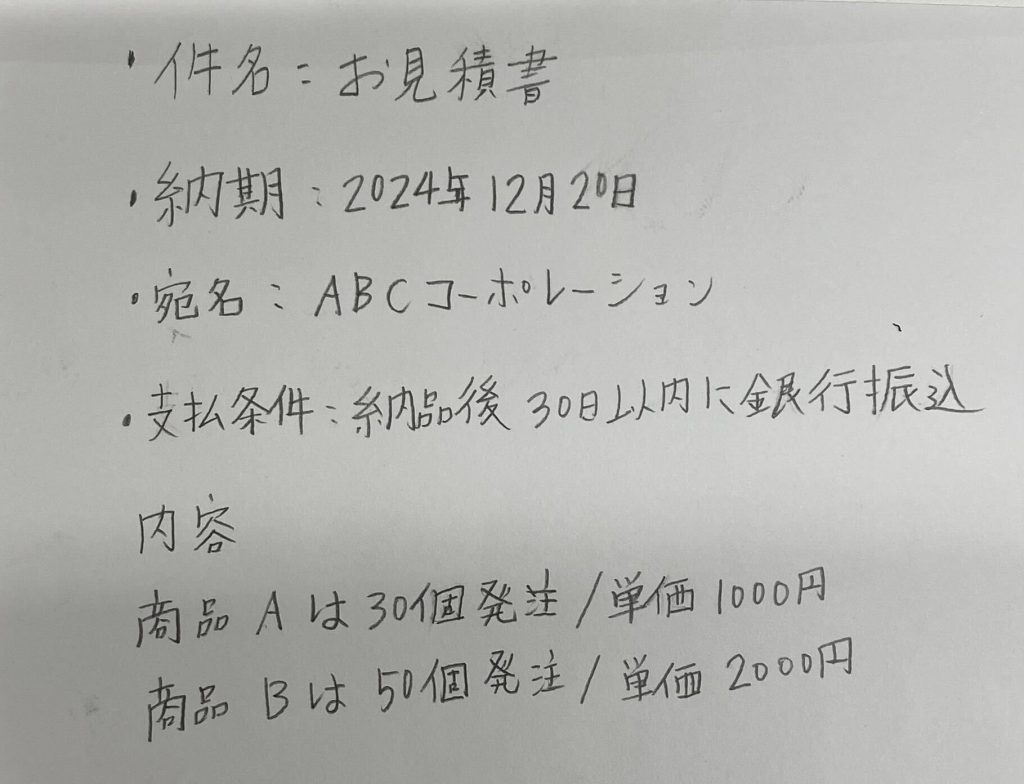 ・件名：お見積書
・納期：2024年12月20日
・宛名：ABCコーポレーション
・支払条件：納品後30日以内に銀行振込
内容
商品Aは30個発注/単価1000円
商品Bは50個発注/単価2000円